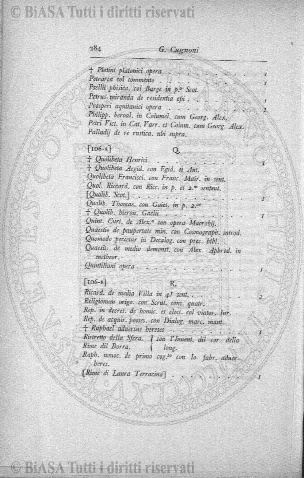 © BiASA Tutti i diritti riservati
284 G. Cugnoni
† Platini platonici opera 1
Petrarca col commento
Pselli phisica, coi Barga in p.ª Scot.
Petrus miranda de residentia epi.
Prosperi aquitanici opera 1
Philipp. beroal. in Columel. cum Georg. Alex.
Petri Vict. in Cat. Varr. et Colum. cum Georg. Alex.
Palladij de re rustica, ubi supra.
[106-a] Q.
† Quolibeta Henrici 1
† Quolibeta Aegid. et Ant.
Quolibeta Francisci, con Franc. Mair. in sent.
Qual. Ricard. con Ricc. in p. et 2.ª sentent.
[Qualib. Scot.] 1
Quolib. Thomas, con Guiei. in p. 2.ae
† Quolib. hierou. Gaelii 1
Quint. Curt. de Alex.º con opera Macrobij.
Quaestio de paupertate min. con Cosmograph. introd.
Quomodo peccetur in Decalog. con prec. bibl.
Quaestio. de medio demonst. con Alex. Aphrod. in
metheor.
Quintiliani opera 1
[106-a] R.
Ricard. de media Villa in 4 sent. 1
Religionum origo, con Scrut. conv. quatr.
Rep. in decret. de homic. et elect. col viator. iur.
Rep. de acquir. posses. con Dialog. marc. mant.
† Raphael adversus hereses 1
Ristretto della Sfera. con l'Inuent. dil cor. della
Rime dil Borra. long.
Raph. venoc. de primo cog.to con Io. fabr. adver.
heres.
[Rime di Laura Terracina] 1
© BiASA Tutti i diritti riservati